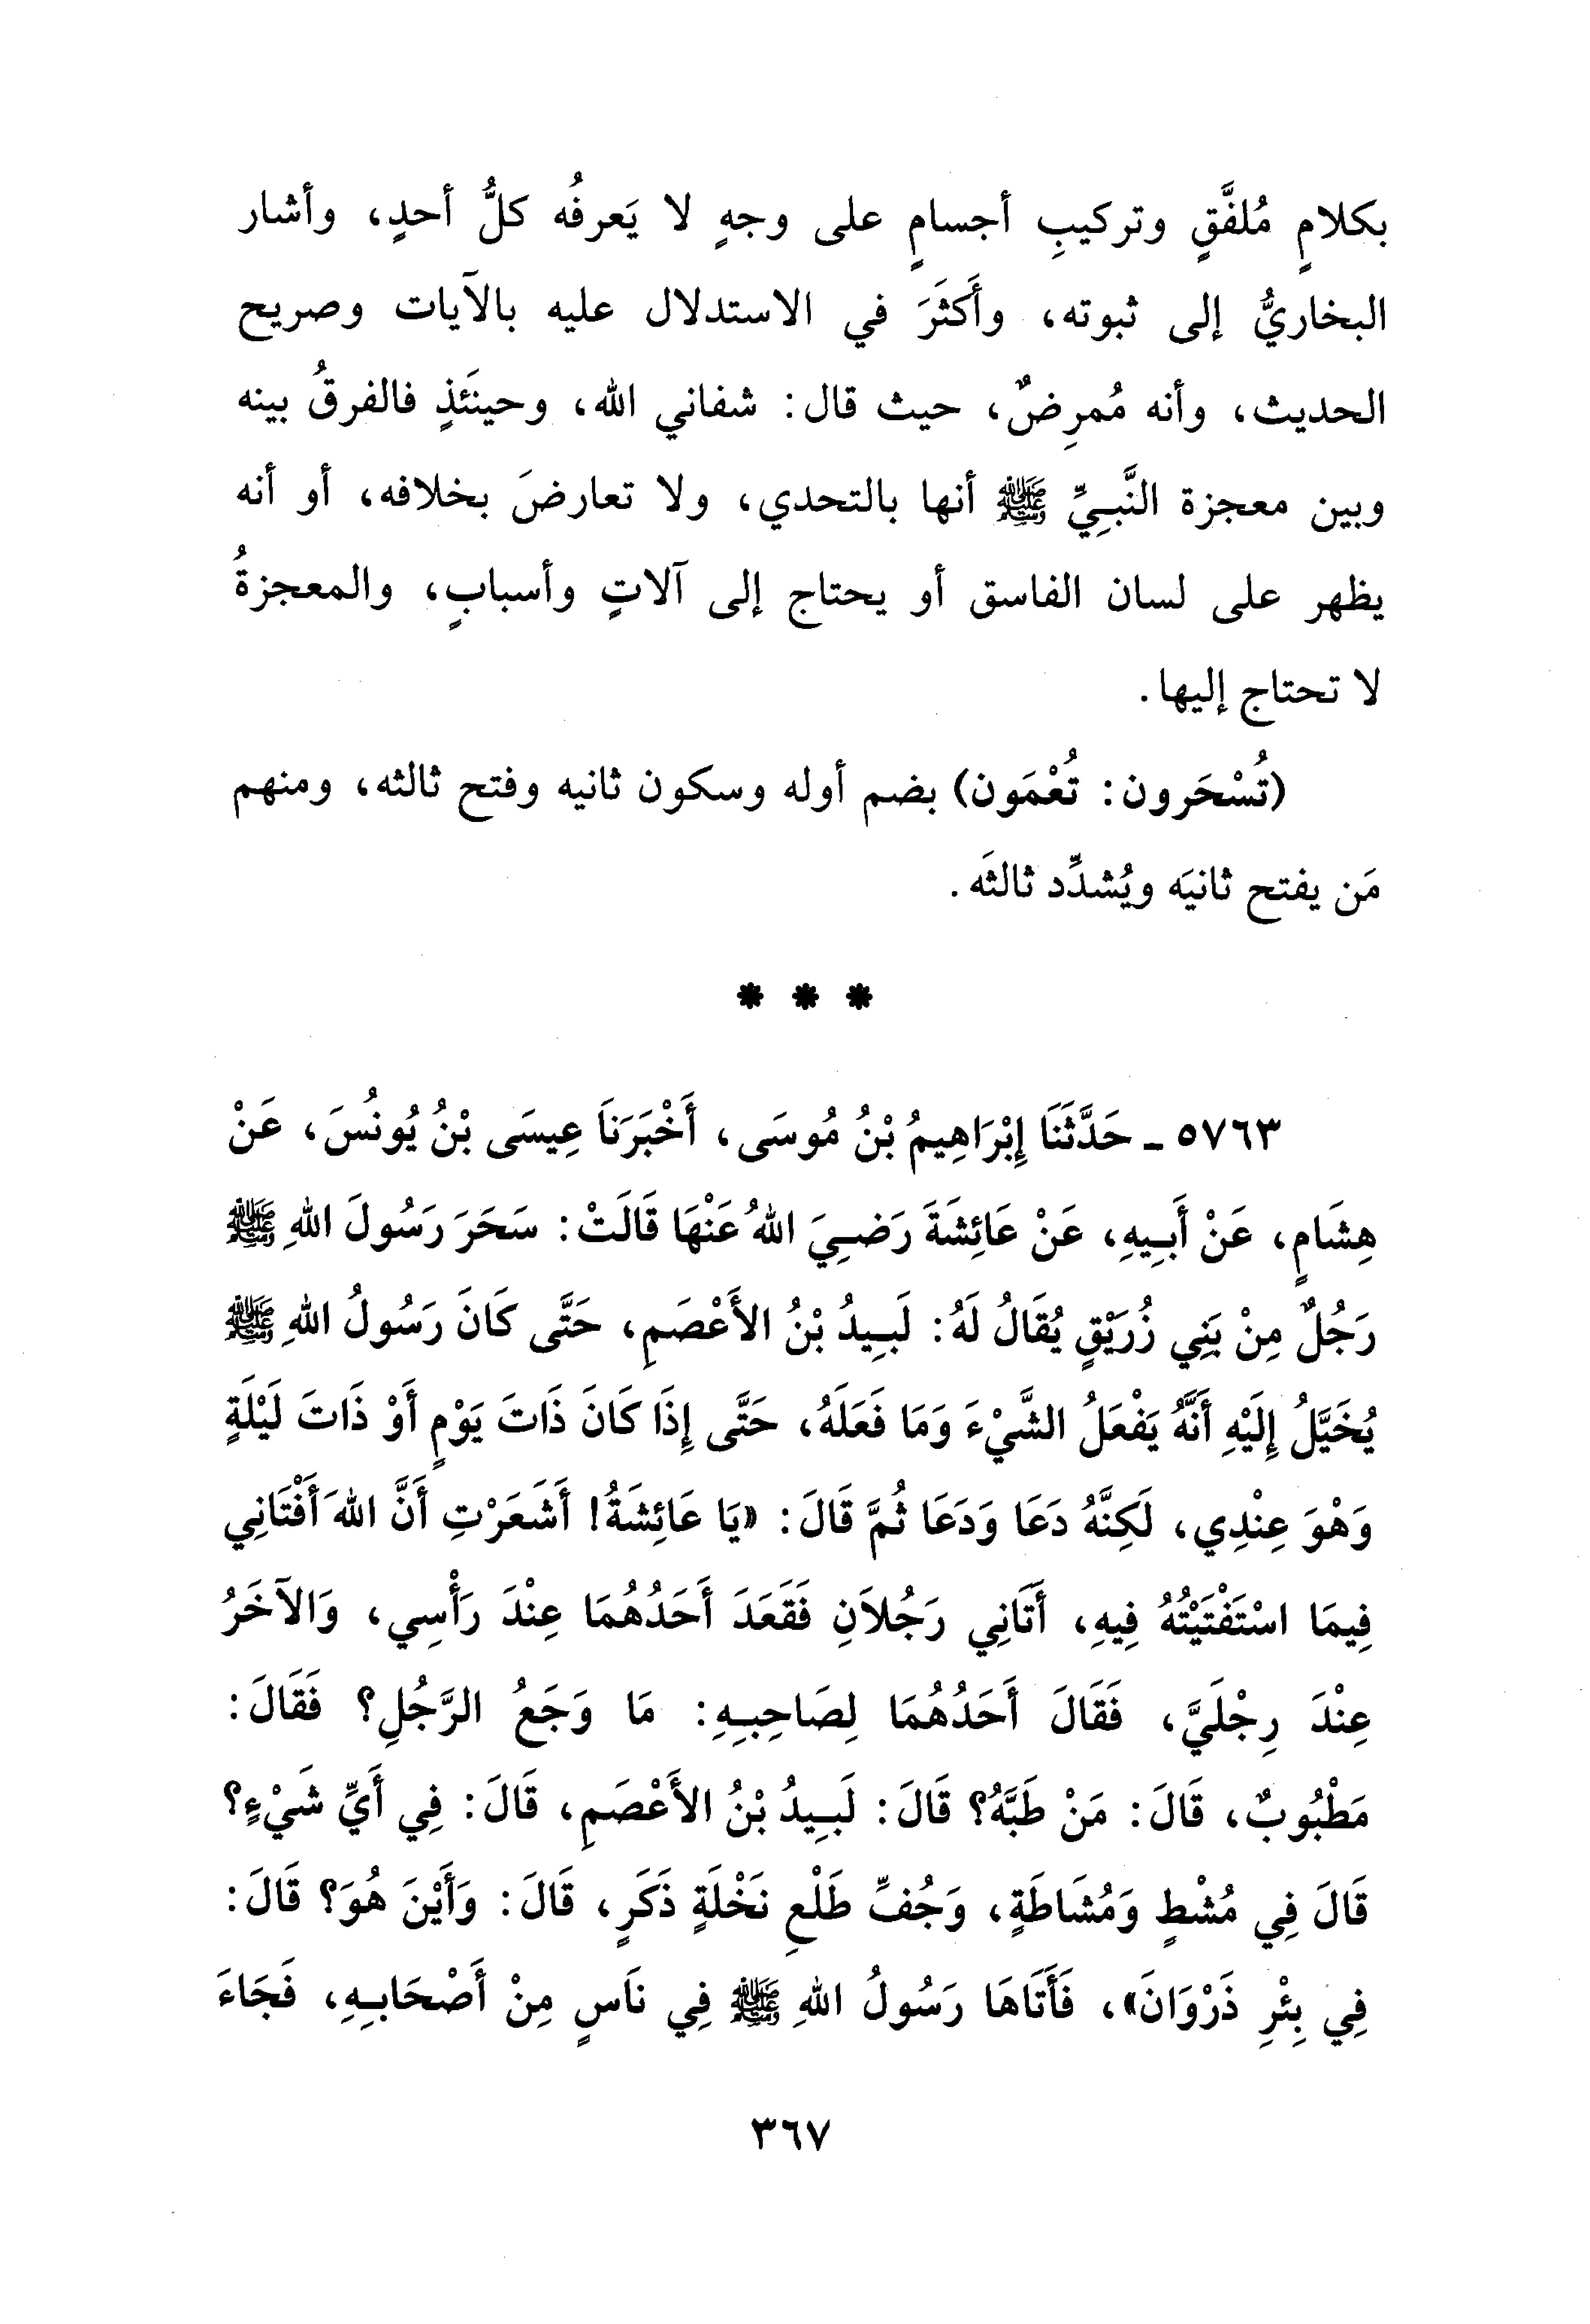 بكلامٍ مُلفَّقٍ وتركيبِ أجسامٍ على وجهٍ لا يَعرفُه كلُّ أحدٍ، وأشار
البخاريُّ إلى ثبوته، وأَكثَرَ في الاستدلال عليه بالآيات وصريح
الحديث، وأنه مُمرِضٌ، حيث قال: شفاني الله، وحينَئذٍ فالفرقُ بينه
وبين معجزة النَّبيِّ ﷺ أنها بالتحدي، ولا تعارضَ بخلافه، أو أنه
يظهر على لسان الفاسق أو يحتاج إلى آلاتٍ وأسبابٍ، والمعجزةُ
لا تحتاج إليها.
(تُسْحَرون: تُعْمَون) بضم أوله وسكون ثانيه وفتح ثالثه، ومنهم
مَن يفتح ثانيَه ويُشدِّد ثالثَه.
* * *
٥٧٦٣ ـ حَدَّثَنَا إِبْرَاهِيمُ بْنُ مُوسَى، أَخْبَرَنَا عِيسَى بْنُ يُونُسَ، عَنْ
هِشَامٍ، عَنْ أَبِيهِ، عَنْ عَائِشَةَ رَضِيَ اللهُ عَنْهَا قَالَتْ: سَحَرَ رَسُولَ اللهِ ﷺ
رَجُلٌ مِنْ بَنِي زُرَيْقٍ يُقَالُ لَهُ: لَبِيدُ بْنُ الأَعْصَمِ، حَتَّى كَانَ رَسُولُ اللهِ ﷺ
يُخَيَّلُ إِلَيْهِ أَنَّهُ يَفْعَلُ الشَّيْءَ وَمَا فَعَلَهُ، حَتَّى إِذَا كَانَ ذَاتَ يَوْمٍ أَوْ ذَاتَ لَيْلَةٍ
وَهْوَ عِنْدِي، لَكِنَّهُ دَعَا وَدَعَا ثُمَّ قَالَ: «يَا عَائِشَةُ! أَشَعَرْتِ أَنَّ اللهَ أَفْتَانِي
فِيمَا اسْتَفْتَيْتُهُ فِيهِ، أَتَانِي رَجُلاَنِ فَقَعَدَ أَحَدُهُمَا عِنْدَ رَأْسِي، وَالآخَرُ
عِنْدَ رِجْلَيَّ، فَقَالَ أَحَدُهُمَا لِصَاحِبِهِ: مَا وَجَعُ الرَّجُلِ؟ فَقَالَ:
مَطْبُوبٌ، قَالَ: مَنْ طَبَّهُ؟ قَالَ: لَبِيدُ بْنُ الأَعْصَمِ، قَالَ: فِي أَيِّ شَيْءٍ؟
قَالَ فِي مُشْطٍ وَمُشَاطَةٍ، وَجُفِّ طَلْعِ نَخْلَةٍ ذَكَرٍ، قَالَ: وَأَيْنَ هُوَ؟ قَالَ:
فِي بِئْرِ ذَرْوَانَ»، فَأَتَاهَا رَسُولُ اللهِ ﷺ فِي نَاسٍ مِنْ أَصْحَابِهِ، فَجَاءَ
٣٦٧